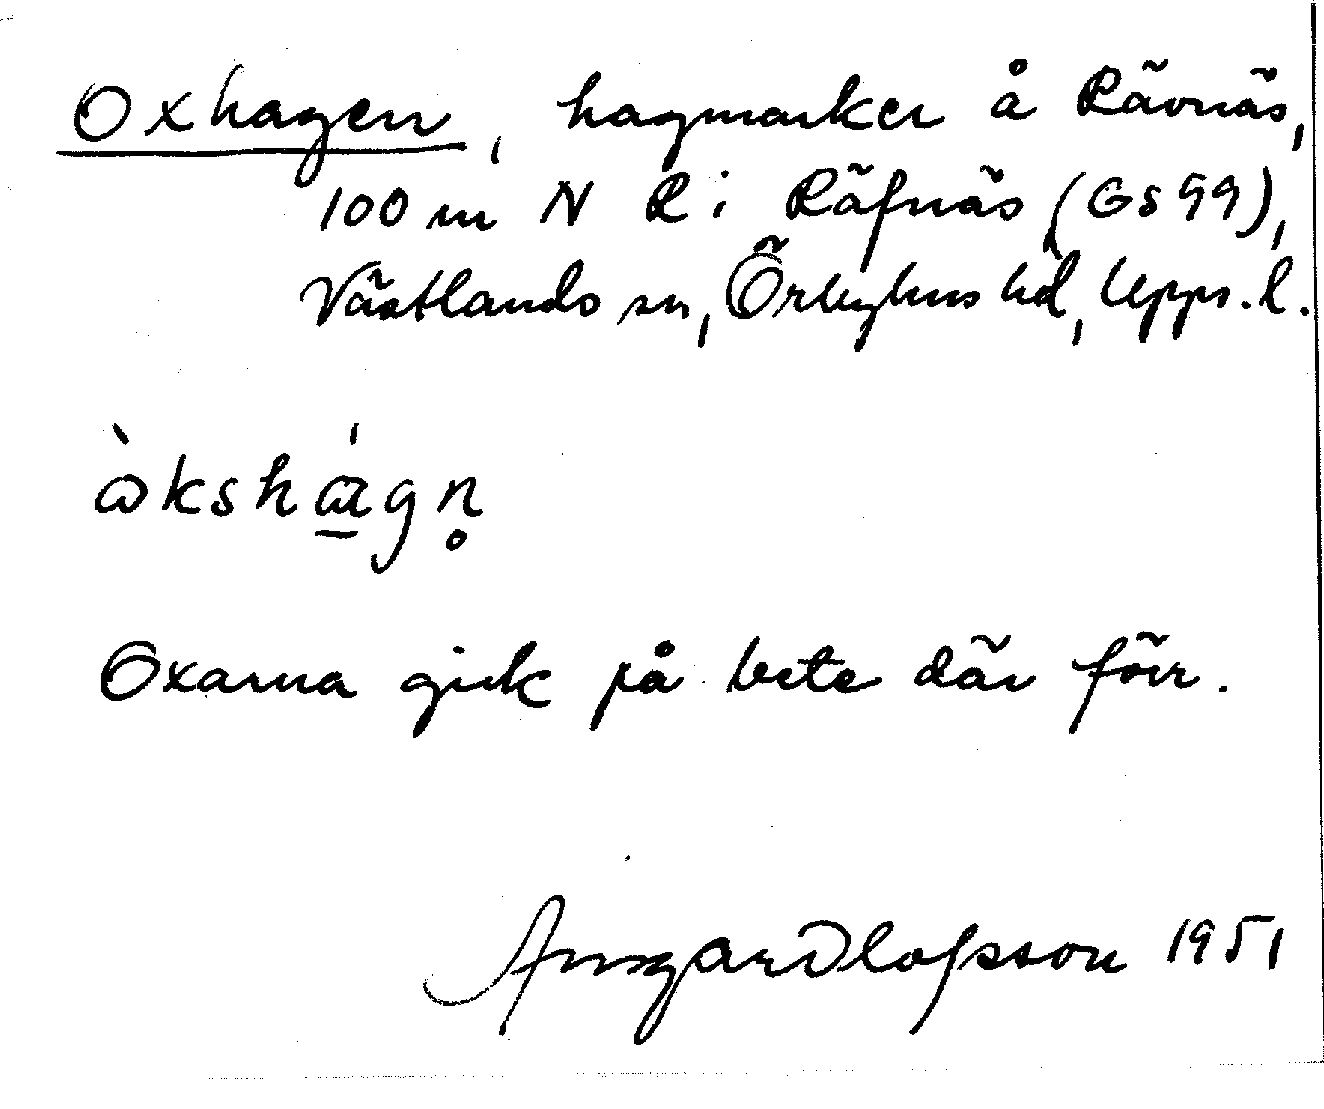 Oxhagen, hagmarker å Rävnäs,
100 m N R i Räfnäs (GS 99),
Västlands sn, Örbyhus hd, Upps. l.
ὼkshά̱gn̥
Oxarna gick på bete där förr.
Ansgar Olofsson 1951